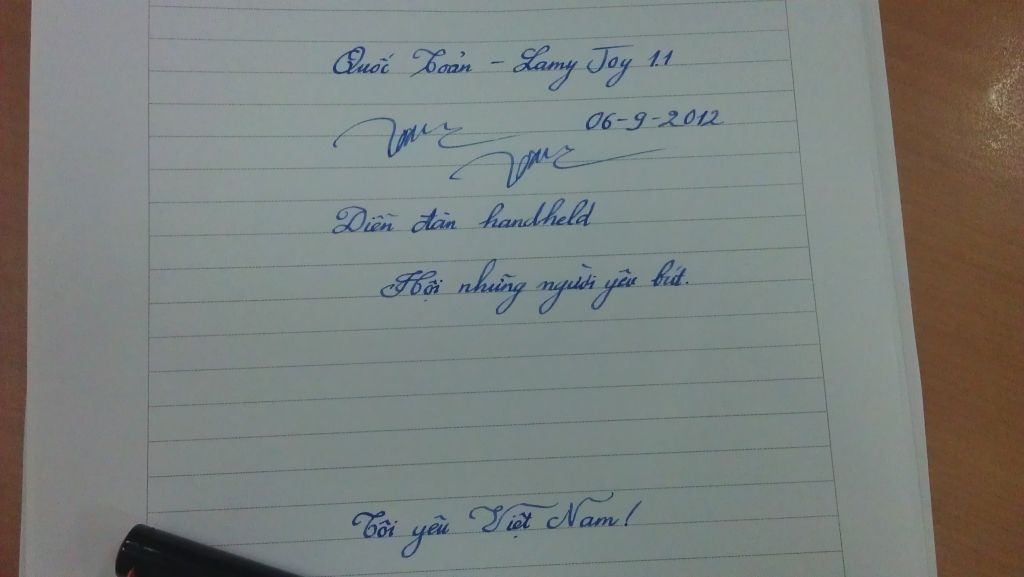 Quốc Toản - Lamy Joy 1.1
06-9-2012
Diễn đàn handheld
Hội những người yêu bút.
Tôi yêu Việt Nam!